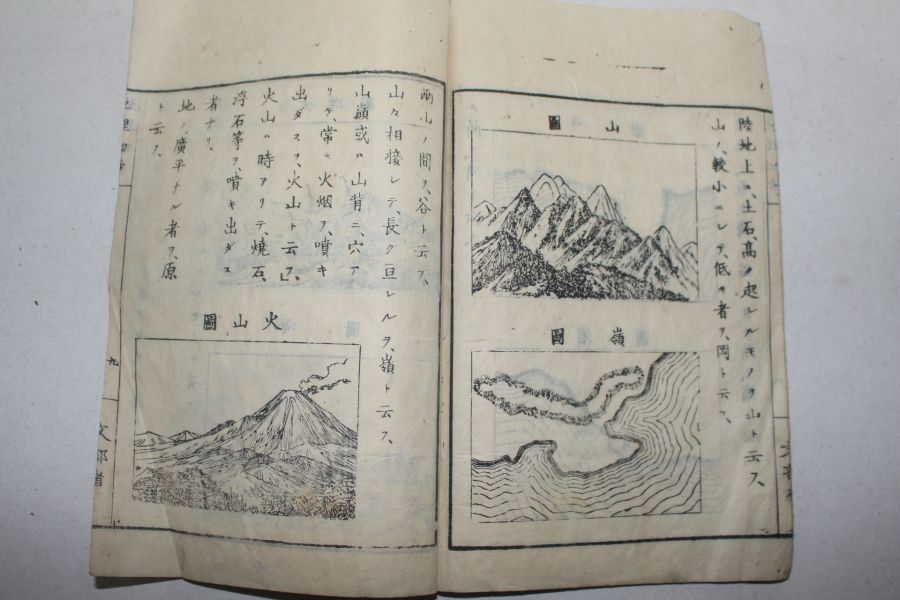 陸地上ニ、土石、高ク起レルモノヲ山ト云フ、
山ノ、較小ニシテ、低キ者ヲ、岡ト云フ、
山圖
嶺圖
両山ノ間ヲ、谷ト云フ、
山々相接シテ、長ク亘レルヲ、嶺ト云フ、
山巓或ハ山背ニ、穴ア
リテ、常ニ火烟ヲ、噴キ
出ダスヲ、火山ト云フ、
火山ハ時アリテ、燒石、
浮石等ヲ、噴キ出ダス
者ナリ、
地ノ、廣平ナル者ヲ、原
ト云フ、
火山圖
九
文部省